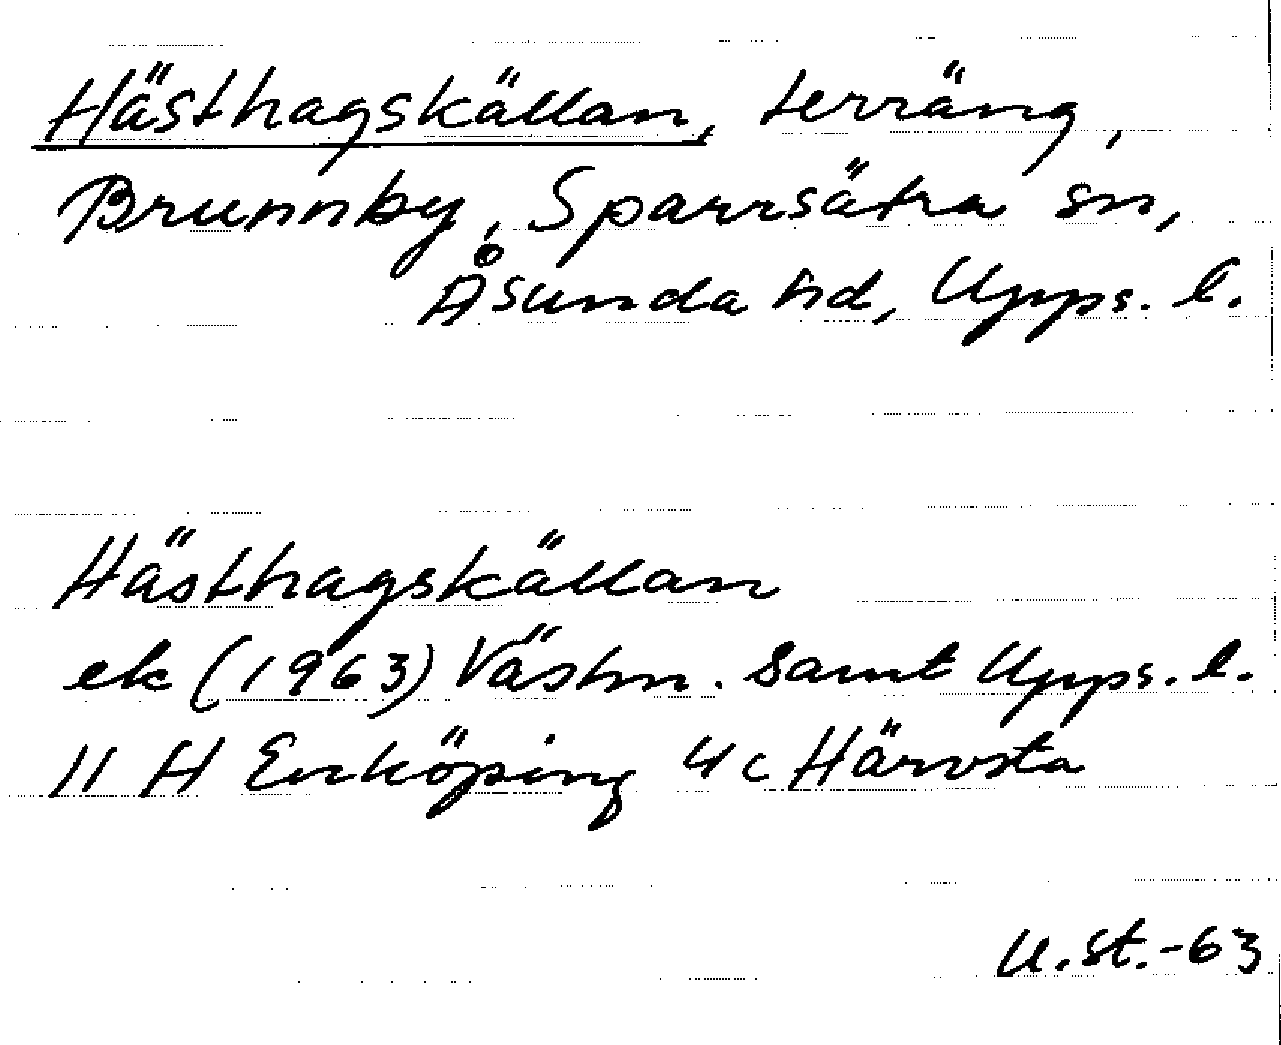 Hästhagskällan, terräng,
Brunnby, Sparrsätra sn,
Åsunda hd, Upps. l.
Hästhagskällan
ek (1963) Västm. samt Upps. l.
11 H Enköping 4c Härvsta
U.St.-63